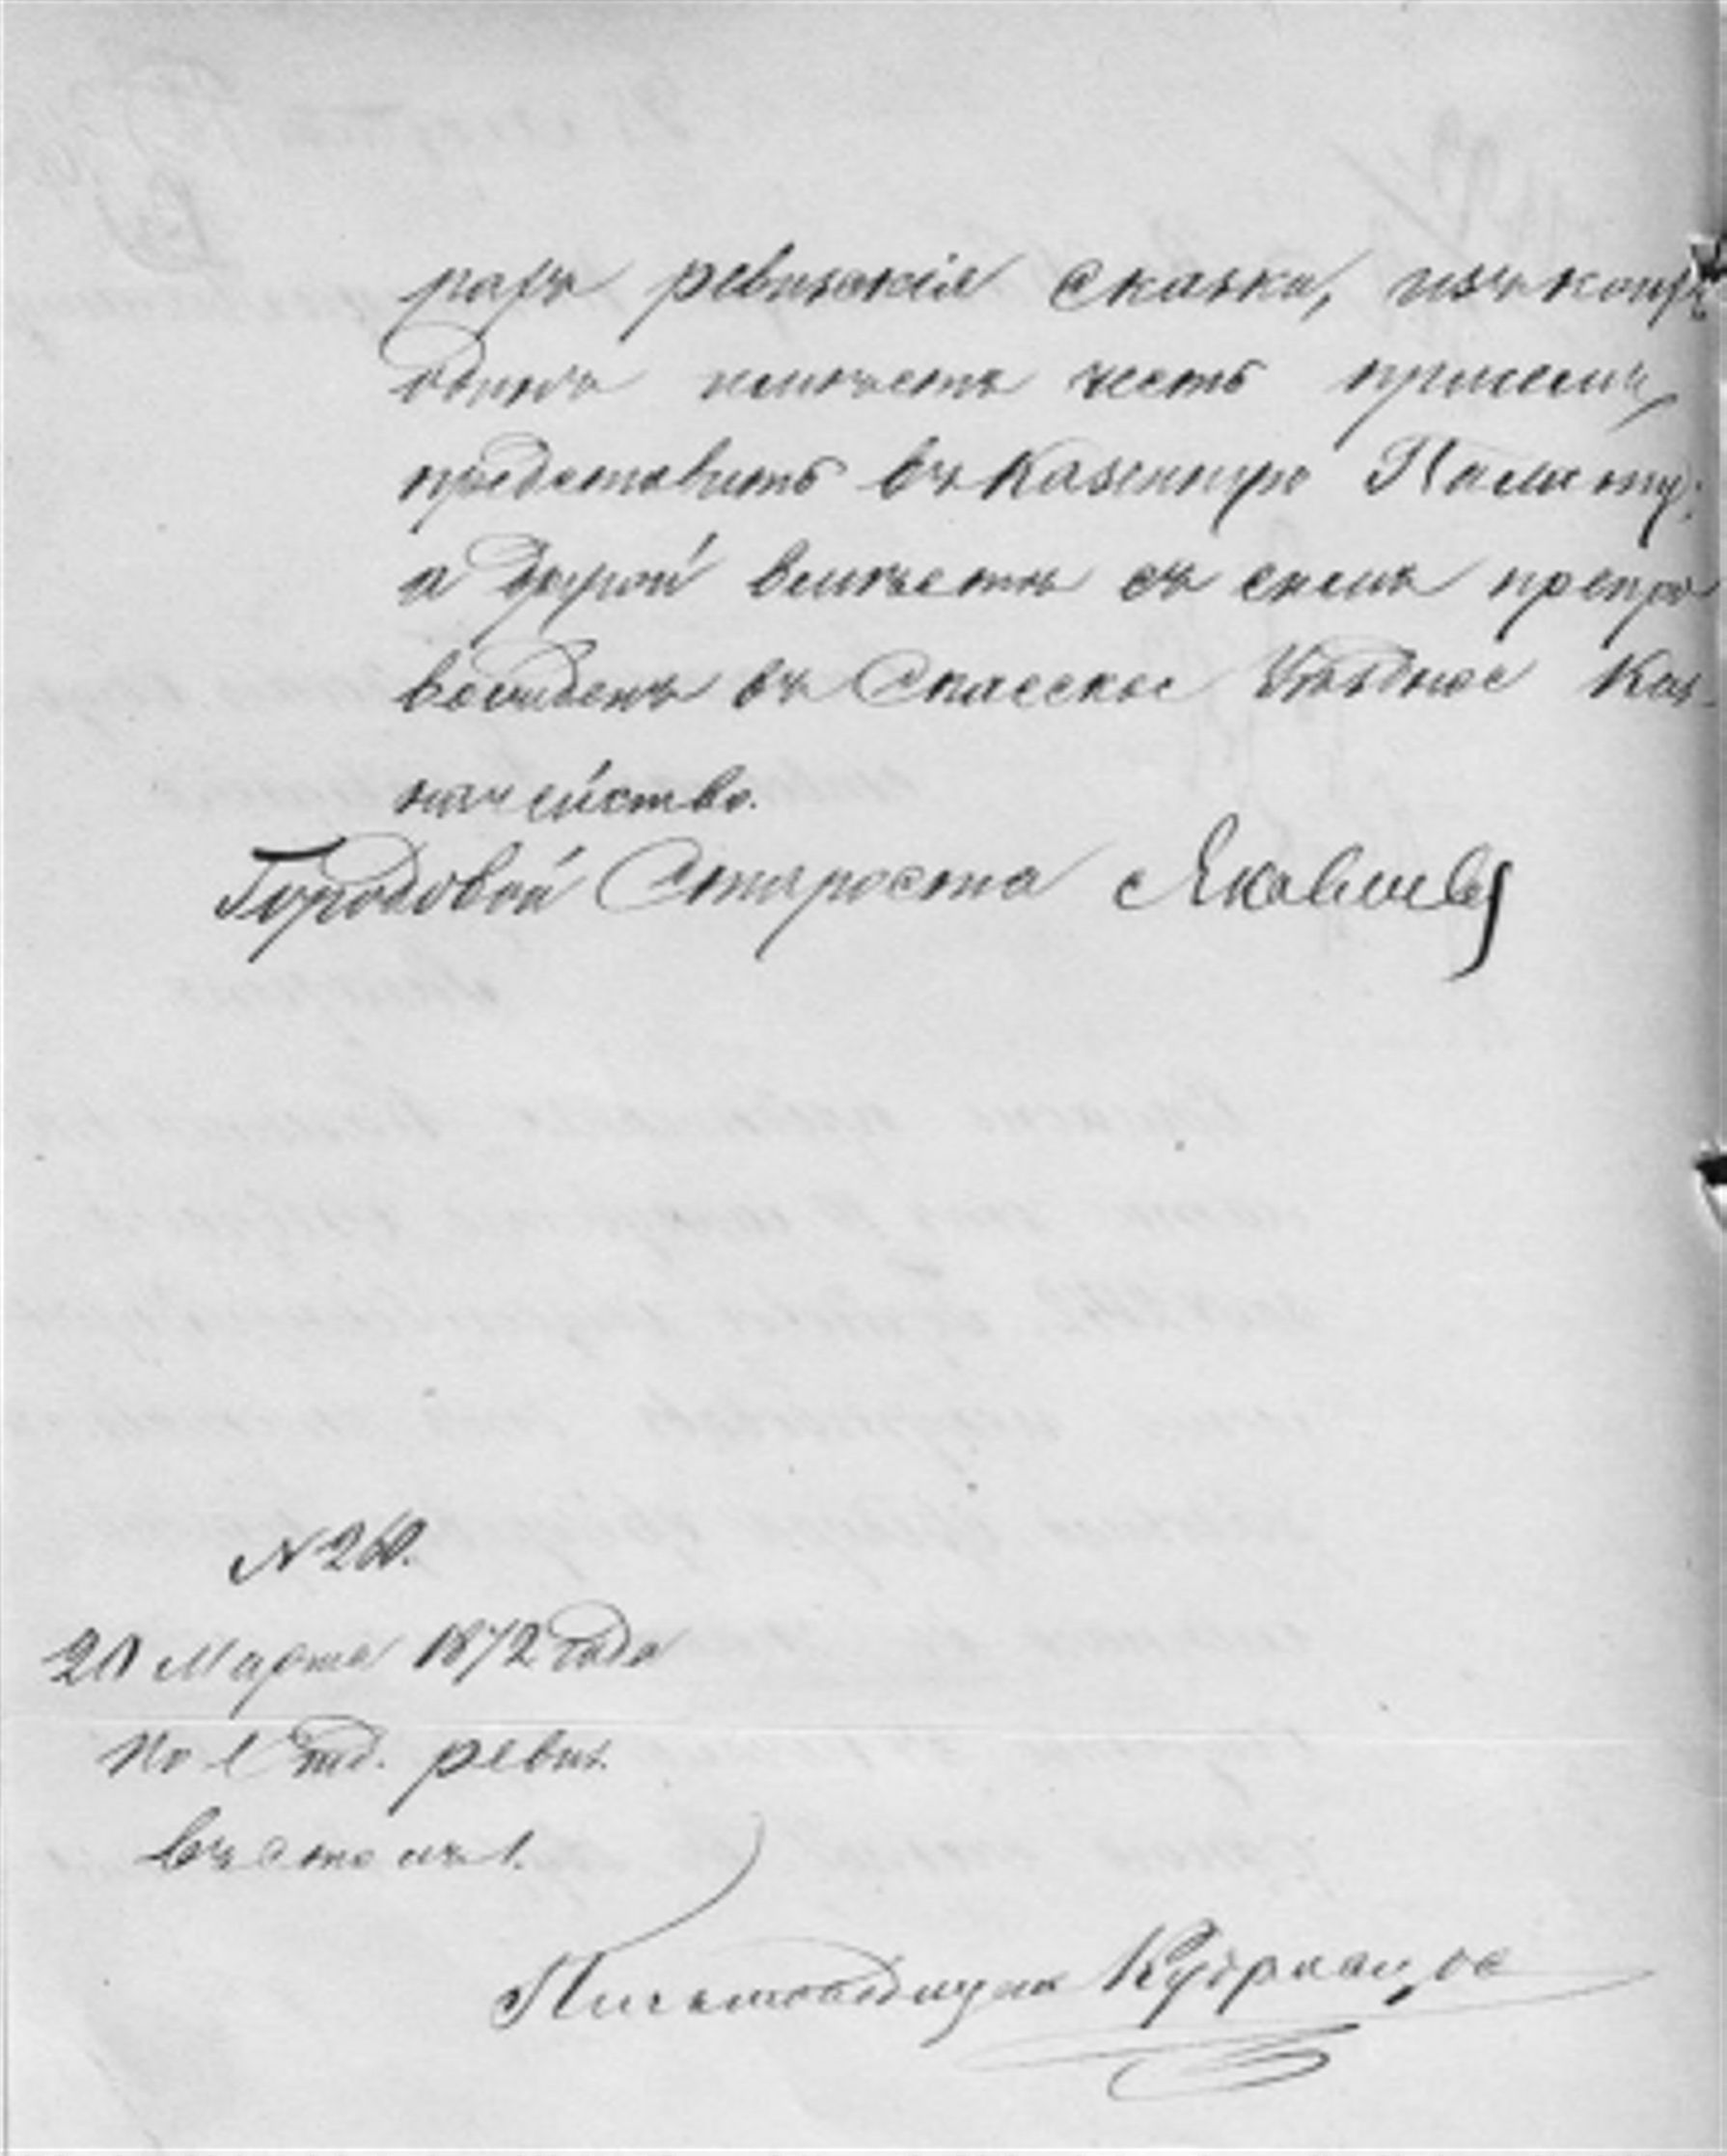 ровъ ревизскія сказки, изъ коихъ
одинъ имѣетъ честь при семъ
представить въ Казенную Палату,
а другой вмѣстѣ съ симъ препро
вожденъ въ Спасское Уѣздное Каз-
начейство.
Городовой Староста Яковлевъ
№ 260.
20 Марта 1872 года
По Отд. ревиз.
въ столъ 1.
Письмоводитель Кудрявцовъ